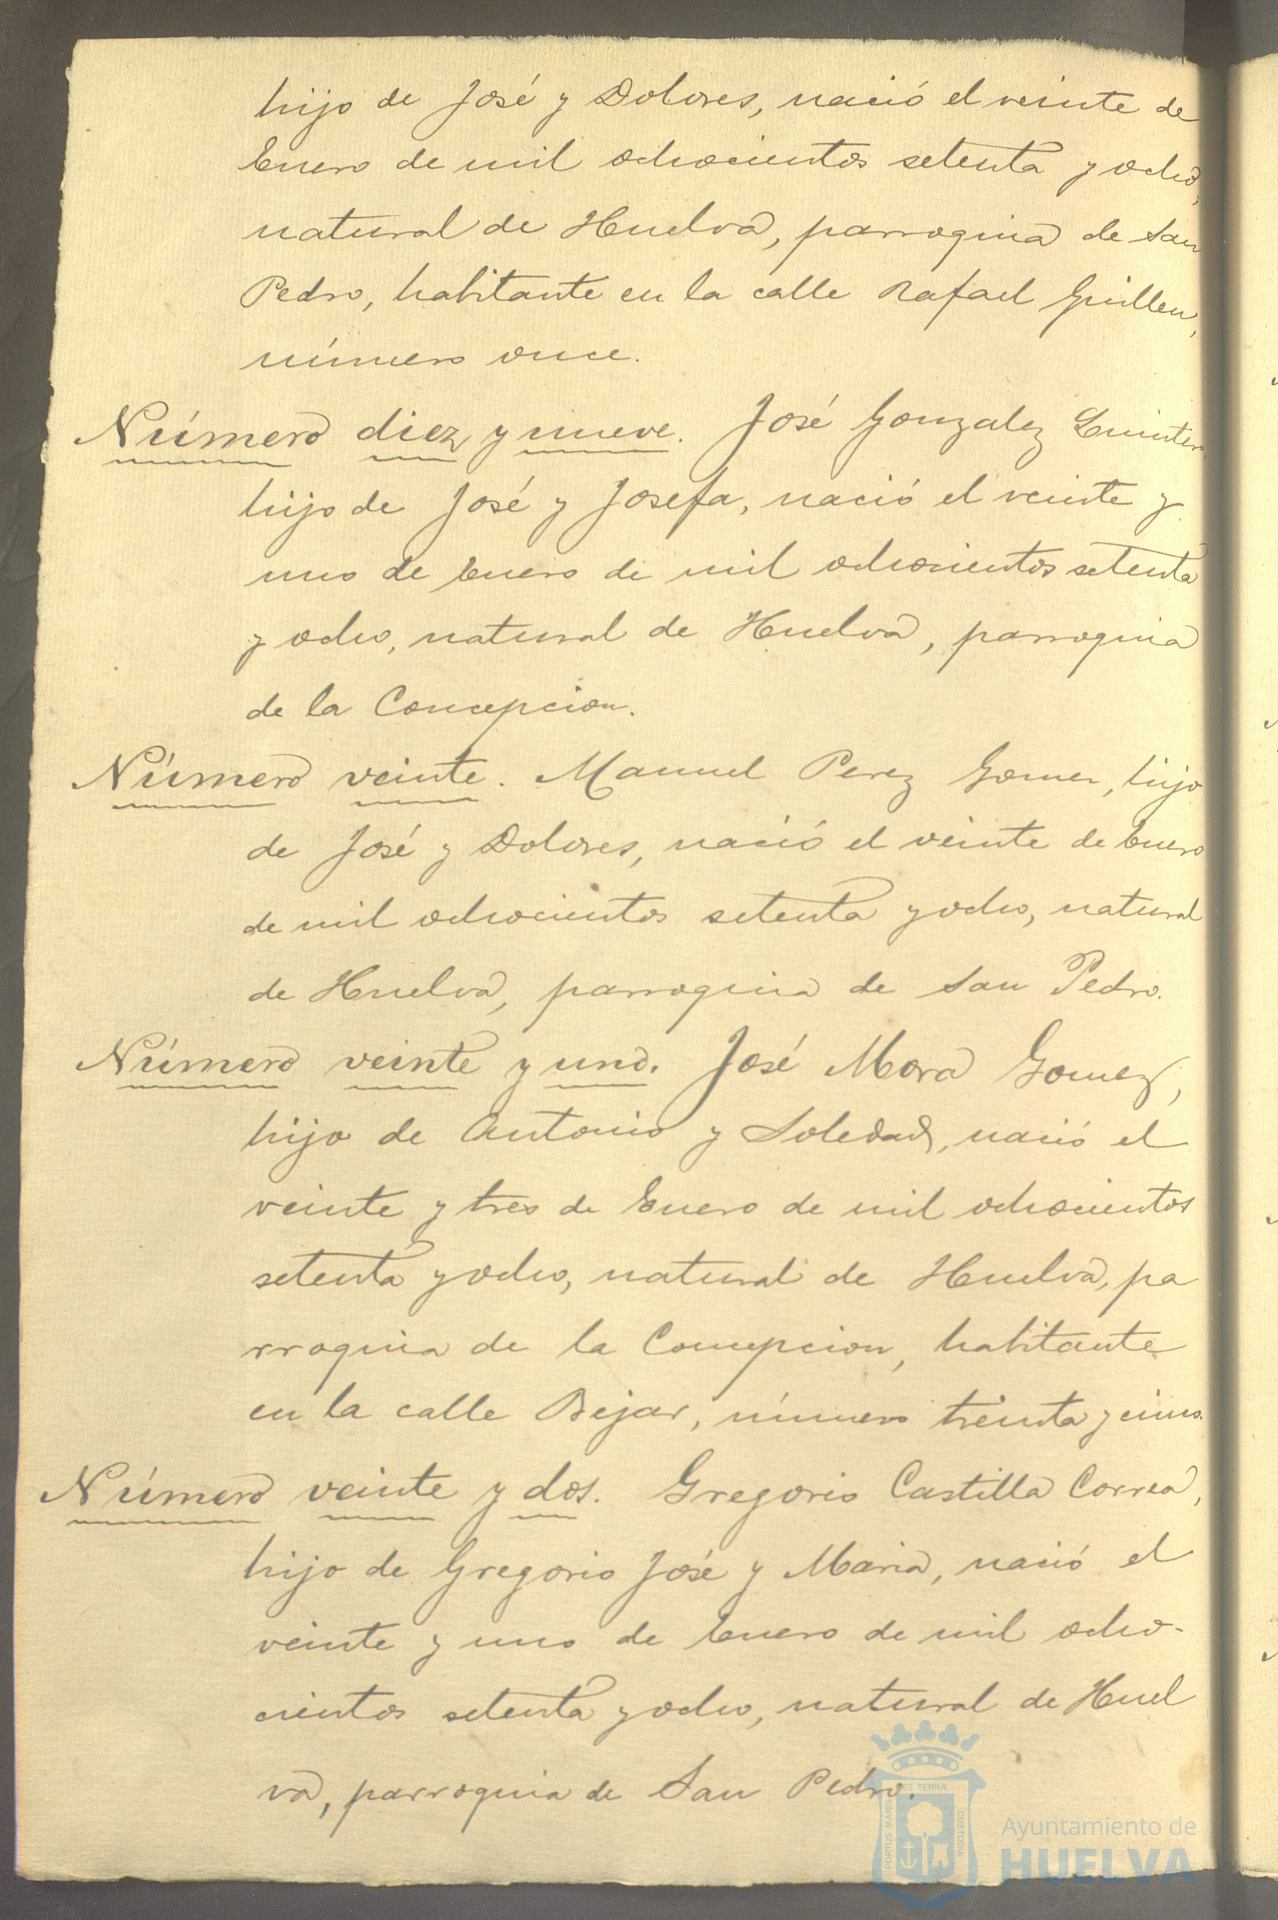 hijo de José y Dolores, nació el veinte de
Enero de mil ochocientos setenta y ocho,
natural de Huelva, parroquia de San
Pedro, habitante en la calle Rafael Guillen,
número once.
Número diez y nueve. José Gonzalez Quintero
hijo de José y Josefa, nació el veinte y
uno de Enero de mil ochocientos setenta
y ocho, natural de Huelva, parroquia
de la Concepcion.
Número veinte. Manuel Perez Gomez, hijo
de José y Dolores, nació el veinte de Enero
de mil ochocientos setenta y ocho, natural
de Huelva, parroquia de San Pedro.
Número veinte y uno. José Mora Gomez,
hijo de Antonio y Soledad, nació el
veinte y tres de Enero de mil ochocientos
setenta y ocho, natural de Huelva, pa
rroquia de la Concepcion, habitante
en la calle Bejar, número treinta y cinco.
Número veinte y dos. Gregorio Castilla Correa,
hijo de Gregorio José y Maria, nació el
veinte y uno de Enero de mil ocho-
cientos setenta y ocho, natural de Huel
va, parroquia de San Pedro.
PORTUS MARIS ET TERRÆ CUSTODIA
Ayuntamiento de
HUELVA